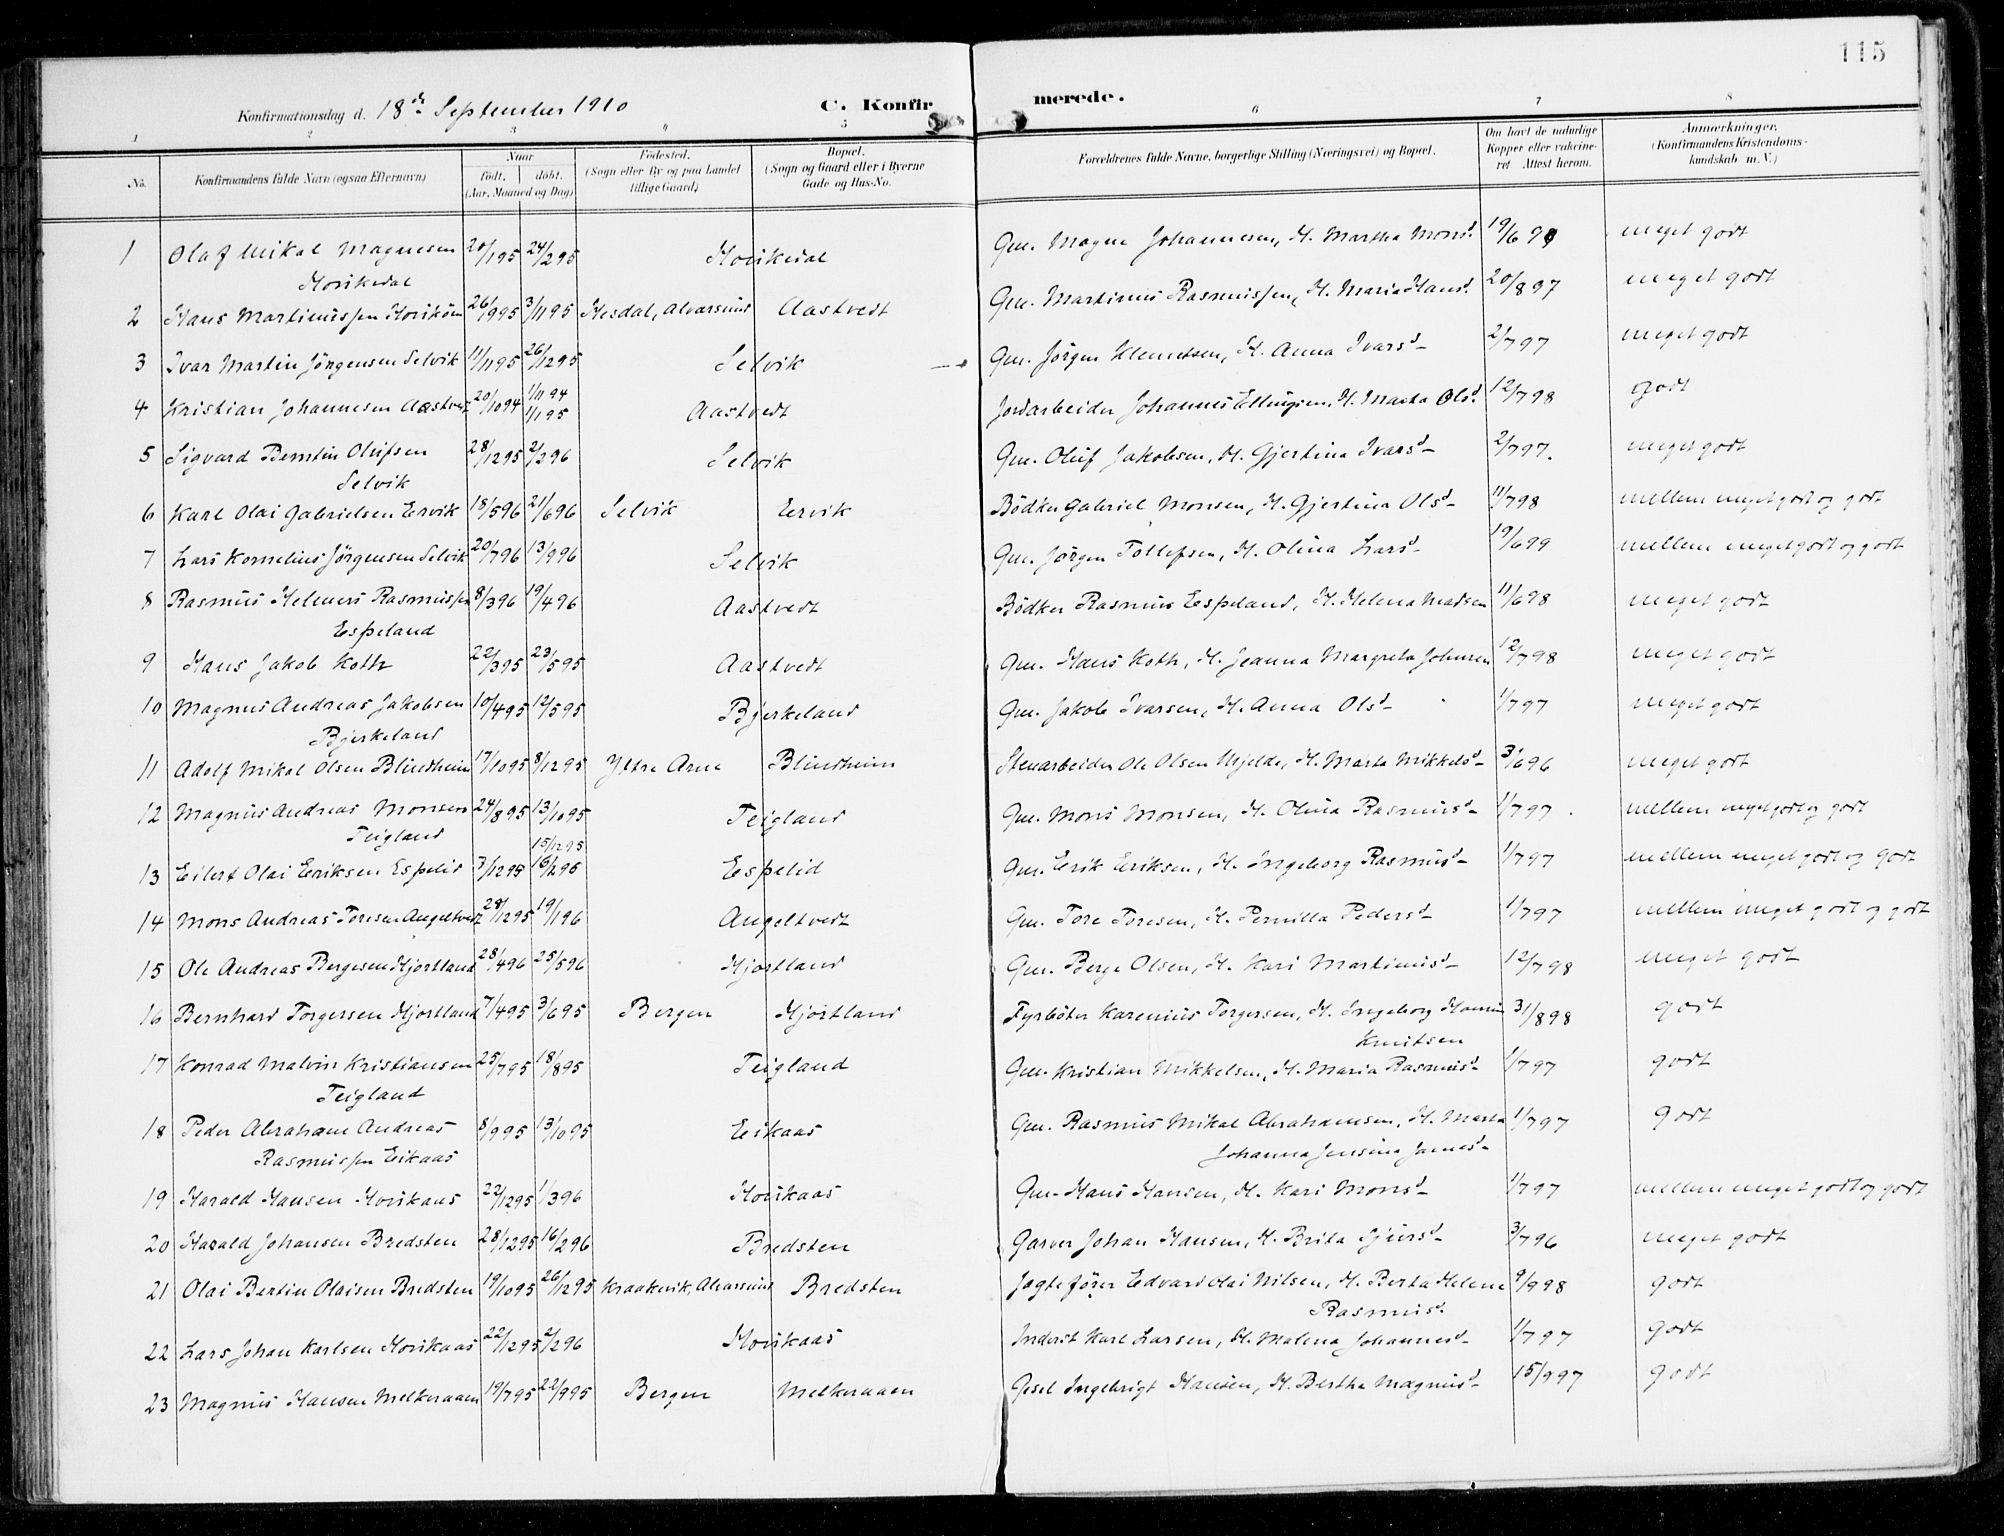 115
Konfirmationsdag d. 18de September 1910 C. Konfirmerede.
1 2 3 4 5 6 7 8
No. Konfirmandens fulde Navn (ogsaa Efternavn) Naar født, døbt. (Aar, Maaned og Dag) Fødested. (Sogn eller By og paa Landet tillige Gaard) Bopæl. (Sogn og Gaard eller i Byerne Gade og Hus-No. Forældrenes fulde Navne, borgerlige Stilling (Næringsvei) og Bopæl. Om havt de naturlige Kopper eller vakcineret Attest herom. Anmærkninger. (Konfirmandens Kristendomskundskab m. V.)
1 Olaf Mikal Magnesen 20/1 95 24/2 95 Gm. Magne Johannesen, H. Martha Monsd. 19/6 meget godt
2 Hans Martinussen 26/9 95 3/11 95 Hesdal, Alversund Aastvedt Gm. Martinus Rasmussen, H. Maria Hansd. 20/8 97 meget godt
3 Ivar Martin Jörgensen Selvik 11/11 95 26/12 95 Selvik Gm. Jörgen Klemetsen, H. Anna Ivarsd- 2/7 97 meget godt
4 Kristian Johannesen Aastvedt 20/10 94 1/11 94 1/1 95 Aastvedt Jordarbeider Johannes Ellingsen, H. Marta Olsd. 12/7 98 godt
5 Sigvard Berntin Olufsen Selvik 28/12 95 2/2 96 Selvik Gm. Oluf Jakobsen, H. Gjertina Ivarsd- 2/7 97. meget godt
6 Karl Olai Gabrielsen Ervik 18/5 96 21/6 96 Selvik Ervik Bödker Gabriel Monsen, H. Gjertina Olsd- 11/7 98 mellem meget godt og godt
7 Lars Kornelius Jörgensen Selvik 20/7 96 13/9 96 Selvik Gm. Jörgen Tollefsen, H. Olina Larsd- 19/6 99 mellem meget godt og godt
8 Rasmus Helmers Rasmussen Espeland 8/3 96 19/4 96 Aastvedt Bödker Rasmus Espeland, H. Helena Madsen 11/6 98 meget godt
9 Hans Jakob Koth 22/3 95 23/5 95 Aastvedt Gm. Hans Koth, H. Jeanna Margreta Johnsen 12/7 98 meget godt
10 Magnus Andreas Jakobsen Bjerkeland 10/4 95 12/5 95 Bjerkeland Gm. Jakob Ivarsen, H. Anna Olsd- 1/7 97 meget godt
11 Adolf Mikal Olsen Blindheim 17/10 95 8/12 95 Ytre Arne Blindheim Stenarbeider Ole Olsen Mjelde, H. Marta Mikkelsd- 3/6 96 meget godt
12 Magnus Andreas Monsen Teigland 24/8 95 13/10 95 Teigland Gm. Mons Monsen, H. Olina Rasmusd- 1/7 97 mellem meget godt og godt
13 Eilert Olai Eriksen Espelid 3/12 95 15/12 95 Espelid Gm. Erik Eriksen, H. Ingeborg Rasmusd- 1/7 97 mellem meget godt og godt
14 Mons Andreas Toresen Angeltvedt 28/12 95 19/1 96 Angeltvedt Gm. Tore Toresen, H. Pernilla Pedersd- 1/7 97 mellem meget godt og godt
15 Ole Andreas Bergesen Hjortland 28/4 96 25/5 96 Hjortland Gm. Berge Olsen, H. Kari Martinusd- 12/7 98 meget godt
16 Bernhard Torgersen Hjortland 7/4 95 3/6 95 Bergen Hjortland Fyrböter Karenius Torgersen, H. Ingeborg Knutsen 31/8 98 godt
17 Konrad Malvin Kristiansen Teigland 25/7 95 18/8 95 Teigland Gm. Kristian Mikkelsen, H. Maria Rasmusd- 1/7 97 godt
18 Peder Abraham Andreas Rasmussen Eikaas 8/9 95 13/10 95 Eikaas Gm. Rasmus Mikal Abrahamsen, H. Marta Johanna Jensina Jansd- 1/7 97 godt
19 Harald Hansen Horikaas 22/12 95 1/3 96 Horikaas Gm. Hans Hansen, H. Kari Monsd- 1/7 97 mellem meget godt og godt
20 Harald Johansen Bredsten 28/12 95 16/2 96 Bredsten Garver Johan Hansen, H. Brita Sjursd- 3/7 96 meget godt
21 Olai Bertin Olaisen Bredsten 19/10 95 26/12 95 Kraakevik, Alversund Bredsten Jagtefører Edvard Olai Nilsen, H. Berta Helene Rasmusd. 9/9 98 godt
22 Lars Johan Karlsen Horikaas 22/12 95 2/2 96 Horikaas Inderst Karl Larsen, H. Malena Johannesd- 1/7 97 godt
23 Magnus Hansen Melkeraaen 19/7 95 22/9 95 Bergen Melkeraaen Gesel Ingebrigt Hansen, H. Bertha Magnusd- 15/9 97 godt